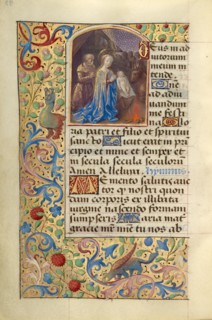 Deus in ad
iutorium
meum in
tende. Dne
ad adiu
uandum
me festi
na Glo
ria patri et filio et spiritui
sancto Sicut erat in prin
cipio et nunc et semper et
in secula seculorum
Amen Alleluia. hymnus
Memento salutis auc
tor q nostri quon
dam corporis ex illibata
virgine nascendo formam
sumpseris Maria mater
gracie mr mie tu nos ab